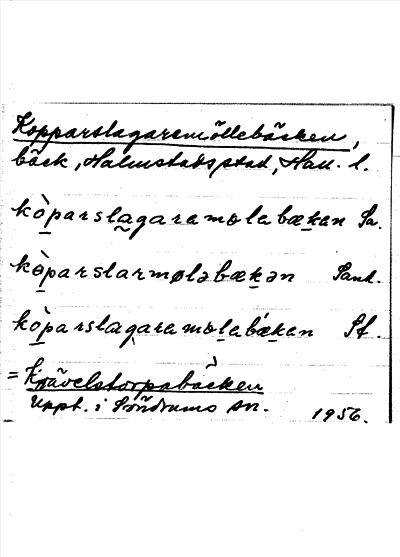 Kopparslagaremöllebäcken,
bäck, Halmstads stad, Hall. l.
kòparslagaramølabækan Sa.
kòparslarmøləbækən Sand.
kòparslagaramølabækan St.
= Knävelstorpabäcken
Uppt. i Söndrums sn. 1956.